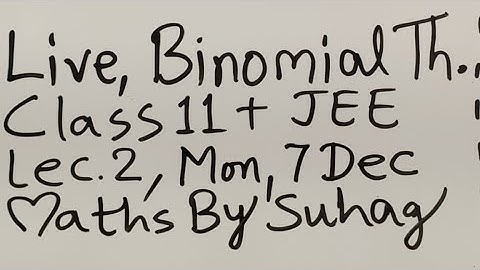 Live, Binomial Th.
Class 11 + JEE
Lec. 2, Mon, 7 Dec
Maths By Suhag